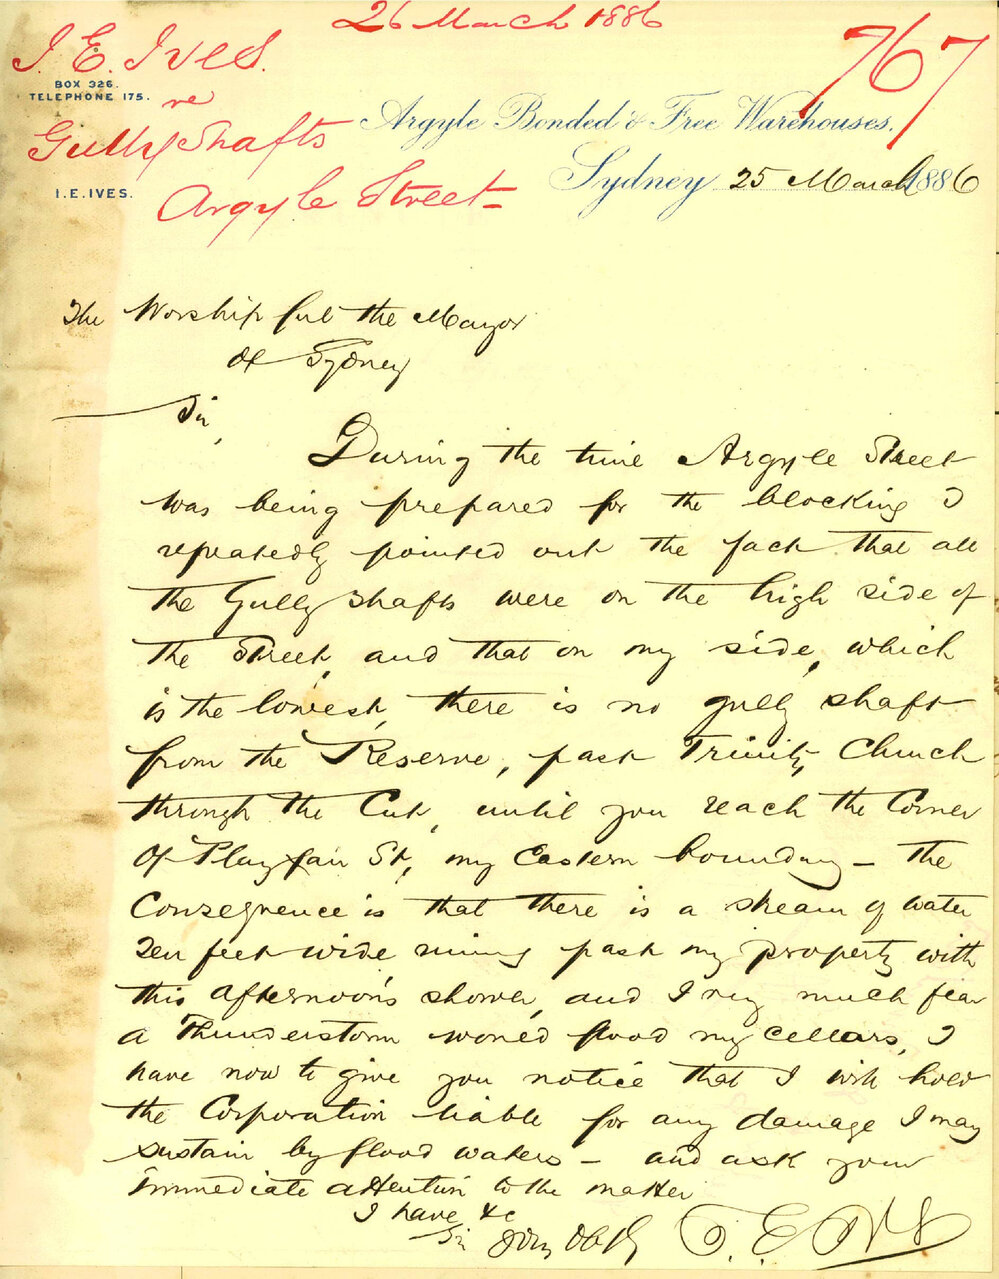 26 March 1886
767
I. E. Ives.
BOX 326.
TELEPHONE 175.
re
Gully Shafts
Argyle Street
I.E.IVES.
Argyle Bonded & Free Warehouses.
Sydney 25 March 1886
The Worshipful the Mayor
of Sydney
Sir,
During the time Argyle Street
was being prepared for the blocking I
repeatedly pointed out the fact that all
the Gully shafts were on the high side of
the Street, and that on my side, which
is the lowest, there is no gully shaft
from the Reserve, past Trinity Church
through the Cut, until you reach the Corner
of Playfair St, my Eastern boundary – the
Consequence is that there is a stream of water
ten feet wide runing past my property with
this afternoon's shower, and I very much fear
a Thunderstorm would flood my Cellars, I
have now to give you notice that I will hold
the Corporation liable for any damage I may
sustain by flood waters – and ask your
immediate attention to the matter
I have &c
Sir Your Ob
I. E. Ives